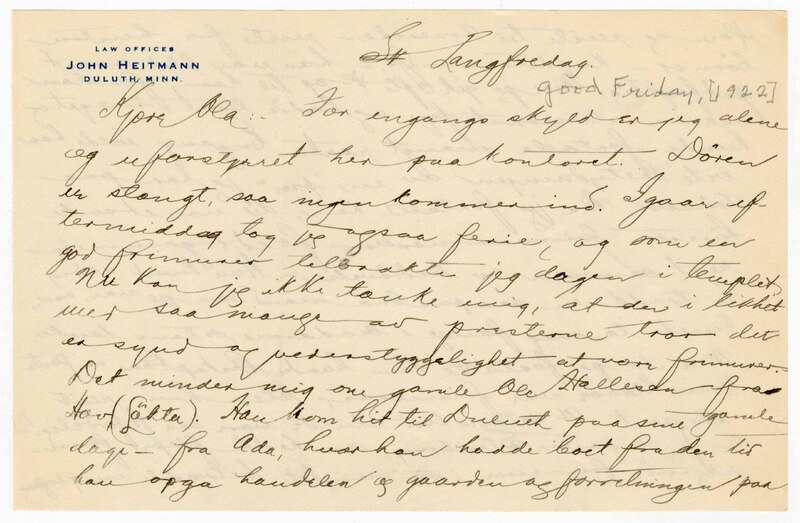 LAW OFFICES
JOHN HEITMANN
DULUTH, MINN.
Langfredag.
Good Friday, [1922]
Kjære Ola:- For engangs skyld er jeg alene
og uforstyrret her paa kontoret. Dören
er stængt, saa ingen kommer ind. Igaar ef-
termiddag tog jeg ogsaa ferie, og som en
god frimurer tilbrakte jeg dagen i templet.
Nu kan jeg ikke tænke mig, at du i likhet
med saa mange av presterne tror det
er synd og vederstyggelighet at være frimurer.
Det minder mig om gamle Ole Hallesen fra
Hov, (Låkta). Han kom hit til Duluth paa sine gamle
dage — fra Ada, hvor han hadde boet fra den tid
han opga handelen og gaarden og forretningen paa